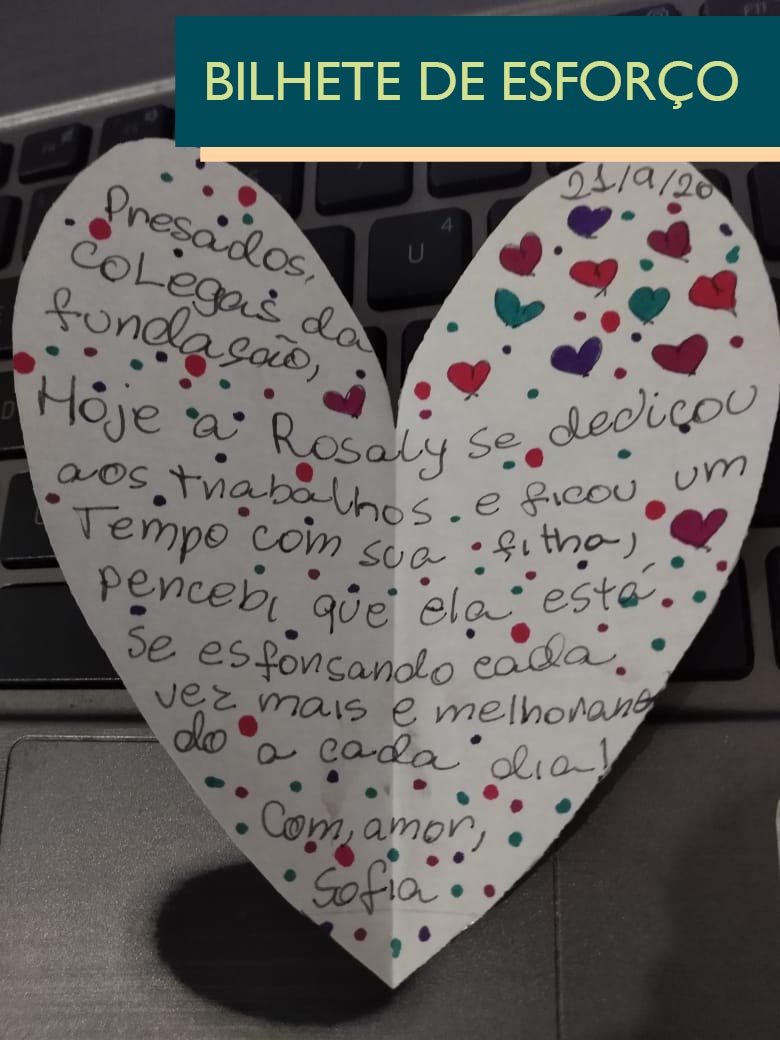 BILHETE DE ESFORÇO
21/9/20
Presados,
coLegas da
fundasão,
Hoje a Rosaly se dedicou
aos trabalhos e ficou um
Tempo com sua filha,
percebi que ela está
se esforsando cada
vez mais e melhorano
do a cada dia!
Com, amor,
Sofia
U
4